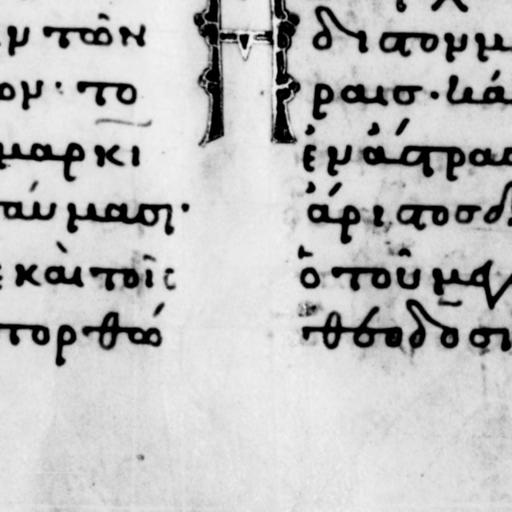 ν τῶν
ον· το
μαρκι
αύμασι·
κὰι τοῖς
τορθώ
διατομμ
ραισ· κά
ἐν ἀστρασ
ἄριστοσδ
ὁ τοῦ μα
θεοδοσι